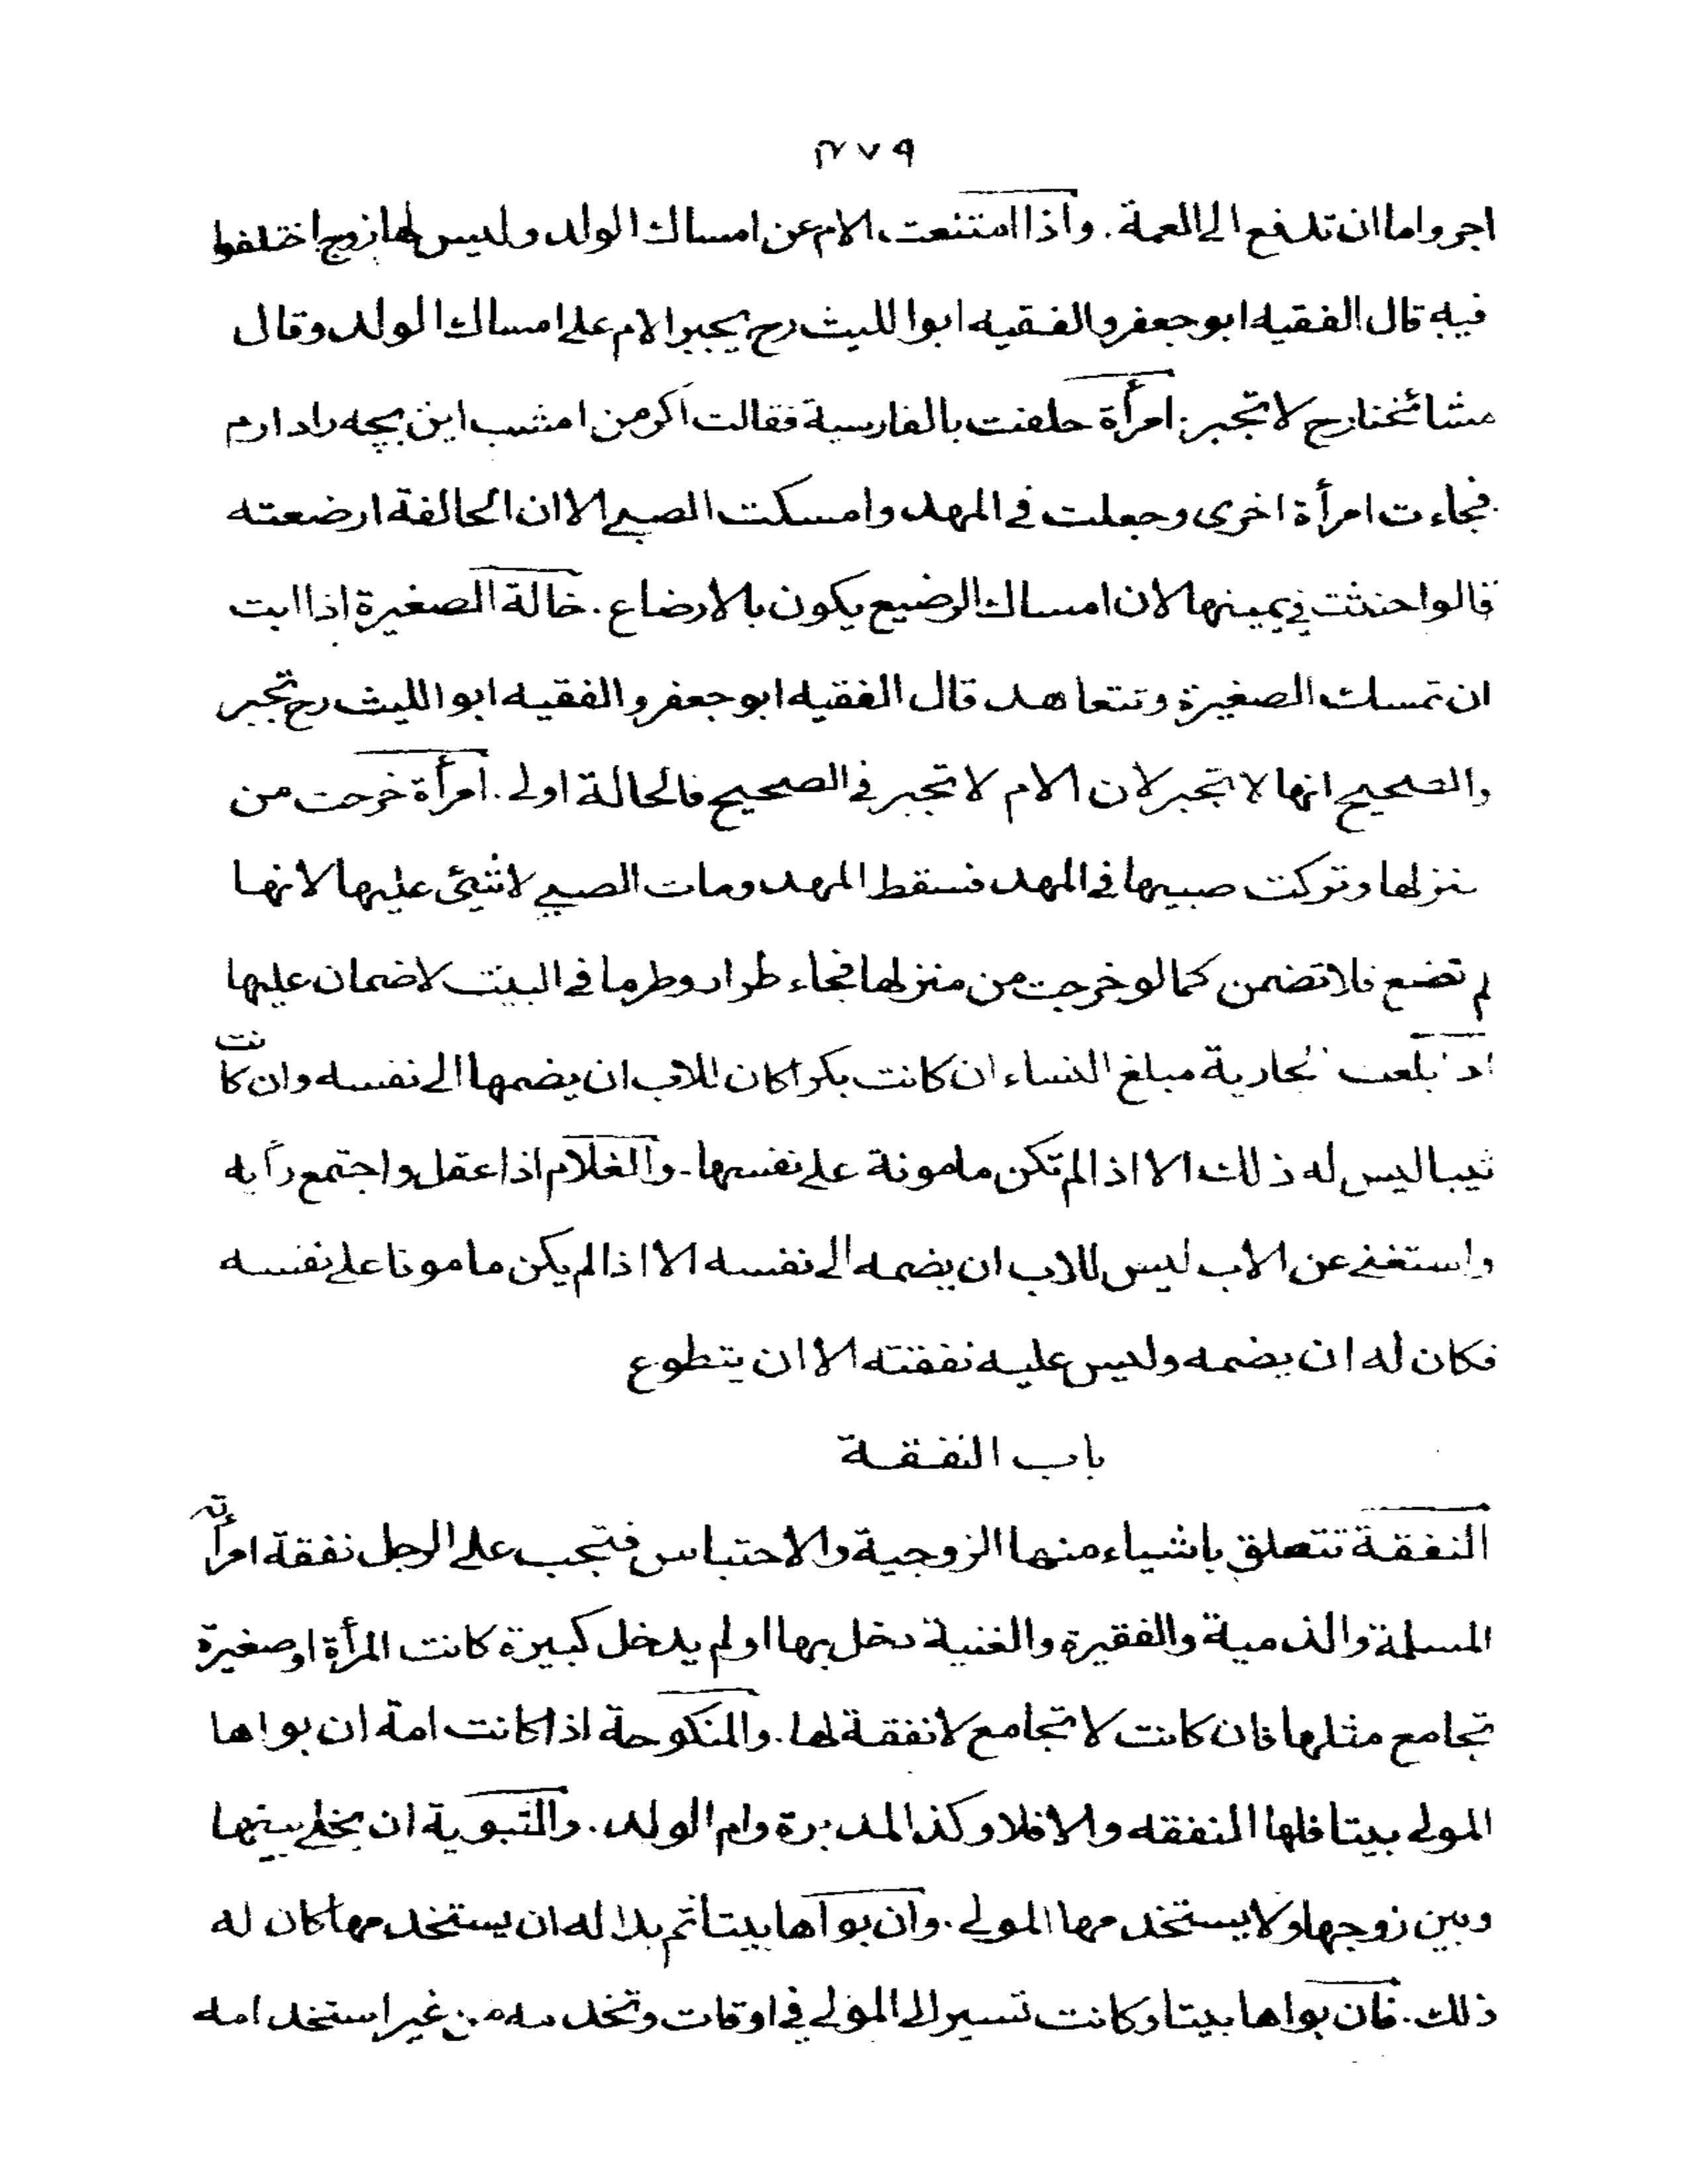 ٤٧٩
اجر واما ان تدفع الى العمة . واذا امتنعت الام عن امساك الولد وليس لها زوج اختلفوا
فيه قال الفقيه ابو جعفر والفقيه ابوا الليث رح يجبر الام على امساك الولد وقال
مشائخنا رح لا تجبر . امرأة حلفت بالفارسية فقالت اكر من امشب اين بچه را دارم
فجاءت امرأة اخرى وجعلت في المهد وامسكت الصبي الا ان الحالفة ارضعته
قالوا حنثت في يمينها لان امساك الرضيع يكون بالارضاع . خالة الصغيرة اذا ابت
ان تمسك الصغيرة وتتعاهد قال الفقيه ابو جعفر والفقيه ابوا الليث رح تجبر
والصحيح انها لا تجبر لان الام لا تجبر في الصحيح فالخالة اولى . امرأة خرجت من
منزلها وتركت صبيها في المهد فسقط المهد ومات الصبي لا شيئ عليها لانها
لم تضع فلا تضمن كما لو خرجت من منزلها فجاء طرار وطر ما في البيت لا ضمان عليها
اذ بلغت الجارية مبلغ النساء ان كانت بكرا كان للاب ان يضمها الى نفسه وان كانت
ثيبا ليس له ذلك الا اذا لم تكن مامونة على نفسها - والغلام اذا عقل واجتمع رأيه
واستغنى عن الاب ليس للاب ان يضمه الى نفسه الا اذا لم يكن مامونا على نفسه
فكان له ان يضمه وليس عليه نفقته الا ان يتطوع
باب النفقة
النفقة تتعلق باشياء منها الزوجية والاحتباس فتجب على الرجل نفقة امرأته
المسلمة والذمية والفقيرة والغنية دخل بها او لم يدخل كبيرة كانت المرأة او صغيرة
تجامع مثلها فان كانت لا تجامع لا نفقة لها . والمنكوحة اذا كانت امة ان بواها
المولى بيتا فلها النفقه والا فلا وكذا المدبرة وام الولد . والتبوية ان يخلي بينها
وبين زوجها ولا يستخدمها المولى . وان بواها بيتا ثم بدا له ان يستخدمها كان له
ذلك . فان بواها بيتا وكانت تسير الى المولى في اوقات وتخدمه من غير استخدامه